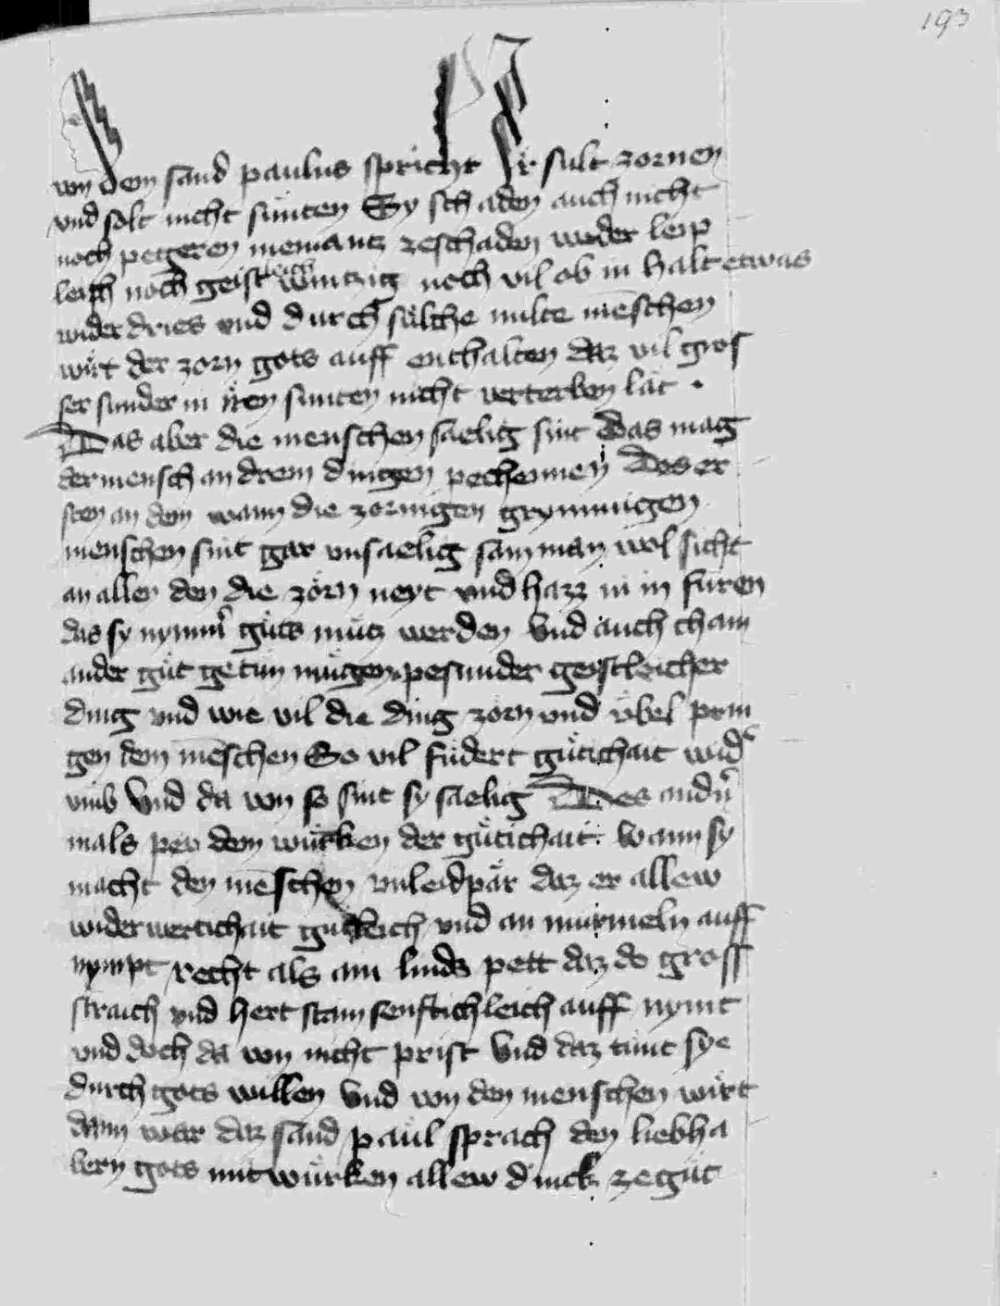 193
von dem sand paulus spricht Ir sult zornen
vnd solt nicht sünten Sy schaden auch nicht
noch pegeren niemantz zeschaden weder leip
leich noch geistleich wintzig noch vil ob in halt etwas
wider dries vnd durch sälche milte mēschen
wirt der zorn gots auff enthalten daz vil gros
ser sunder in iren sünten nicht verterben lät .
Das aber die menschen saelig sint Das mag
der mensch an drein dingen pechennen Des er
sten an dem wann die zornigen grymmigen
menschen sint gar vnsaelig sam man wol sicht
an allen den die zorn neyt vnd hazz in in füren
das sy nymm̄ güts mütz werden Vnd auch chain
ander güt getün mügen pesunder geistleicher
ding vnd wie vil die ding zorn vnd übel prin
gen dem mēschen So vil füdert gütichait wid̄
vmb Vnd da von so sint sy saelig Des andn̄
mals pey dem würken der gütichait Wann sy
macht den mēschen vnleidpär daz er allew
widerwertichait gütleich vnd an murmeln auff
nympt recht als ain linds pett daz do gross
straich vnd hert stain senftichleich auff nymt
vnd doch da von nicht prist Vnd daz tunt sye
durch gots willen Vnd von den menschen wirt
dann war daz sand paul sprach den liebha
bern gots mit würken allew dinck ze güt